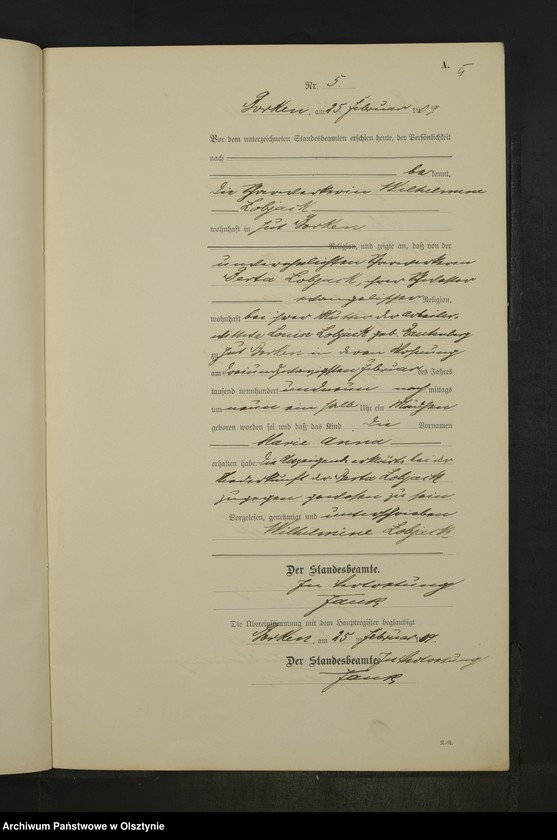 A.
5
Nr. 5.
Borken, am 25 Februar 1909
Vor dem unterzeichneten Standesbeamten erschien heute, der Persönlichkeit
nach
be kannt,
die Scharwerkerin Wilhelmine
Lobjack
wohnhaft in Gut Borken
Religion, und zeigte an, daß von der
unverehelichten Scharwerkerin
Berta Lobjack, ihrer Schwester
evangelischer Religion,
wohnhaft bei ihrer Mutter der Arbeiter-
wittwe Louise Lobjack geb.
zu Gut Borken in deren Wohnung
am dreiundzwanzigsten Februar des Jahres
tausend neunhundert undneun nach mittags
um neun ein halb Uhr ein Mädchen
geboren worden sei und daß das Kind die Vornamen
Marie Anna
erhalten habe. Die Anzeigende erklärte bei der
Niederkunft der Berta Lobjack
zugegen gewesen zu sein
Vorgelesen, genehmigt und unterschrieben
Wilhelmine Lobjack
Der Standesbeamte.
In Vertretung
Die Übereinstimmung mit dem Hauptregister beglaubigt
Borken, am 25 Februar 09.
Der Standesbeamte. In Vertretung
Archiwum Państwowe w Olsztynie